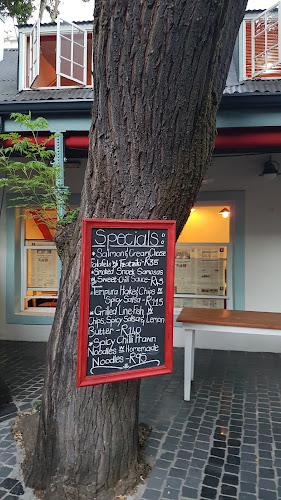 Specials:
* Salmon & Cream Cheese
- R35
* Smoked Snoek Samosas
& Sweet Chilli Sauce - R45
* Tempura Hake & Chips
Spicy Salsa - R115
* Grilled Linefish &
Chips, Spicy Salsa & Lemon
Butter - R140
* Spicy Chilli Prawn
Noodles & Homemade
Noodles - R90